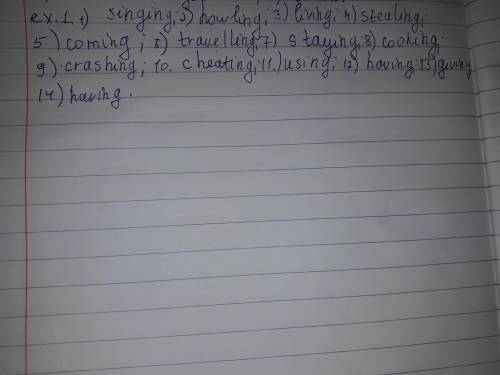 ex. 1. 1) singing; 2) howling; 3) living; 4) stealing;
5) coming; 6) travelling; 7) staying; 8) cooking.
9) crashing; 10. cheating; 11.) using; 12) having; 13) giving
14) having.